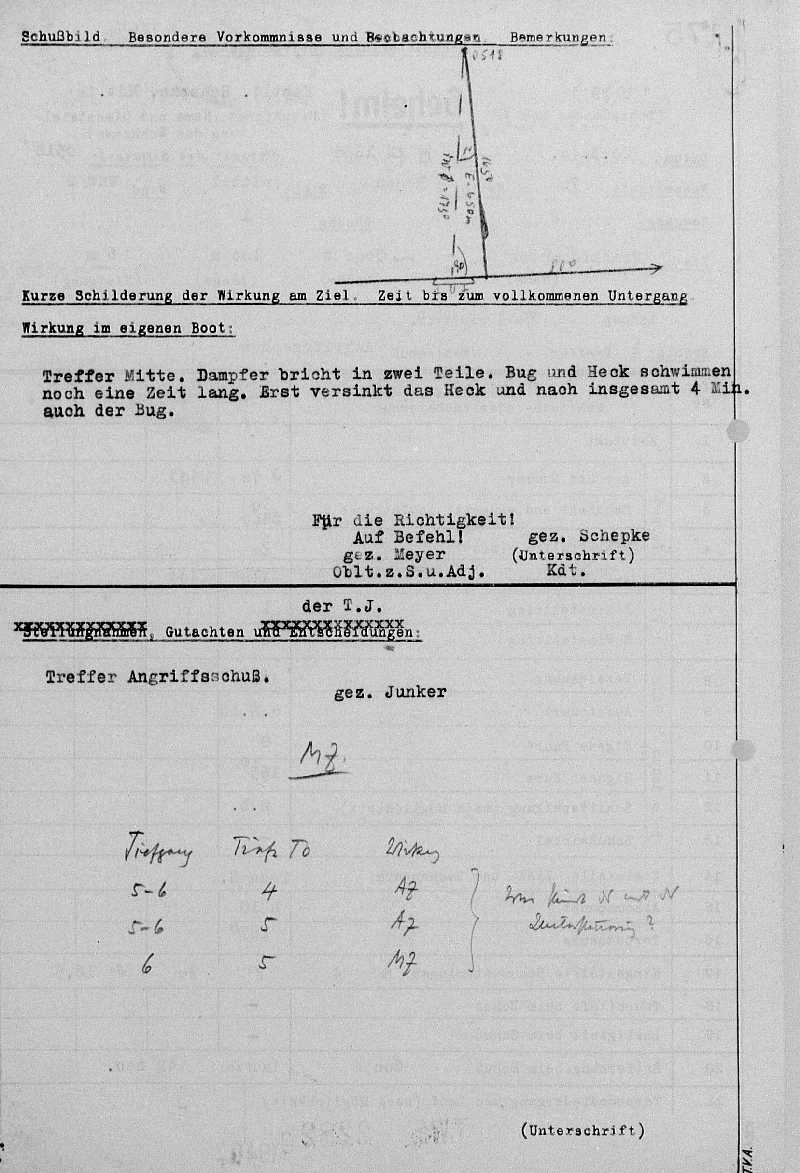 Schußbild. Besondere Vorkommnisse und Beobachtungen. Bemerkungen:
0518
E = 450m
90°
Kurze Schilderung der Wirkung am Ziel. Zeit bis zum vollkommenen Untergang
Wirkung im eigenen Boot:
Treffer Mitte. Dampfer bricht in zwei Teile. Bug und Heck schwimmen
noch eine Zeit lang. Erst versinkt das Heck und nach insgesamt 4 Min.
auch der Bug.
Für die Richtigkeit!
Auf Befehl! gez. Schepke
gez. Meyer (Unterschrift)
Oblt.z.S.u.Adj. Kdt.
der T.J.
Stellungnahmen, Gutachten und Entscheidungen:
Treffer Angriffsschuß.
gez. Junker
MZ.
Tiefgang To
5-6 4 AZ
5-6 5 AZ
6 5 MZ
(Unterschrift)
T.V.A.